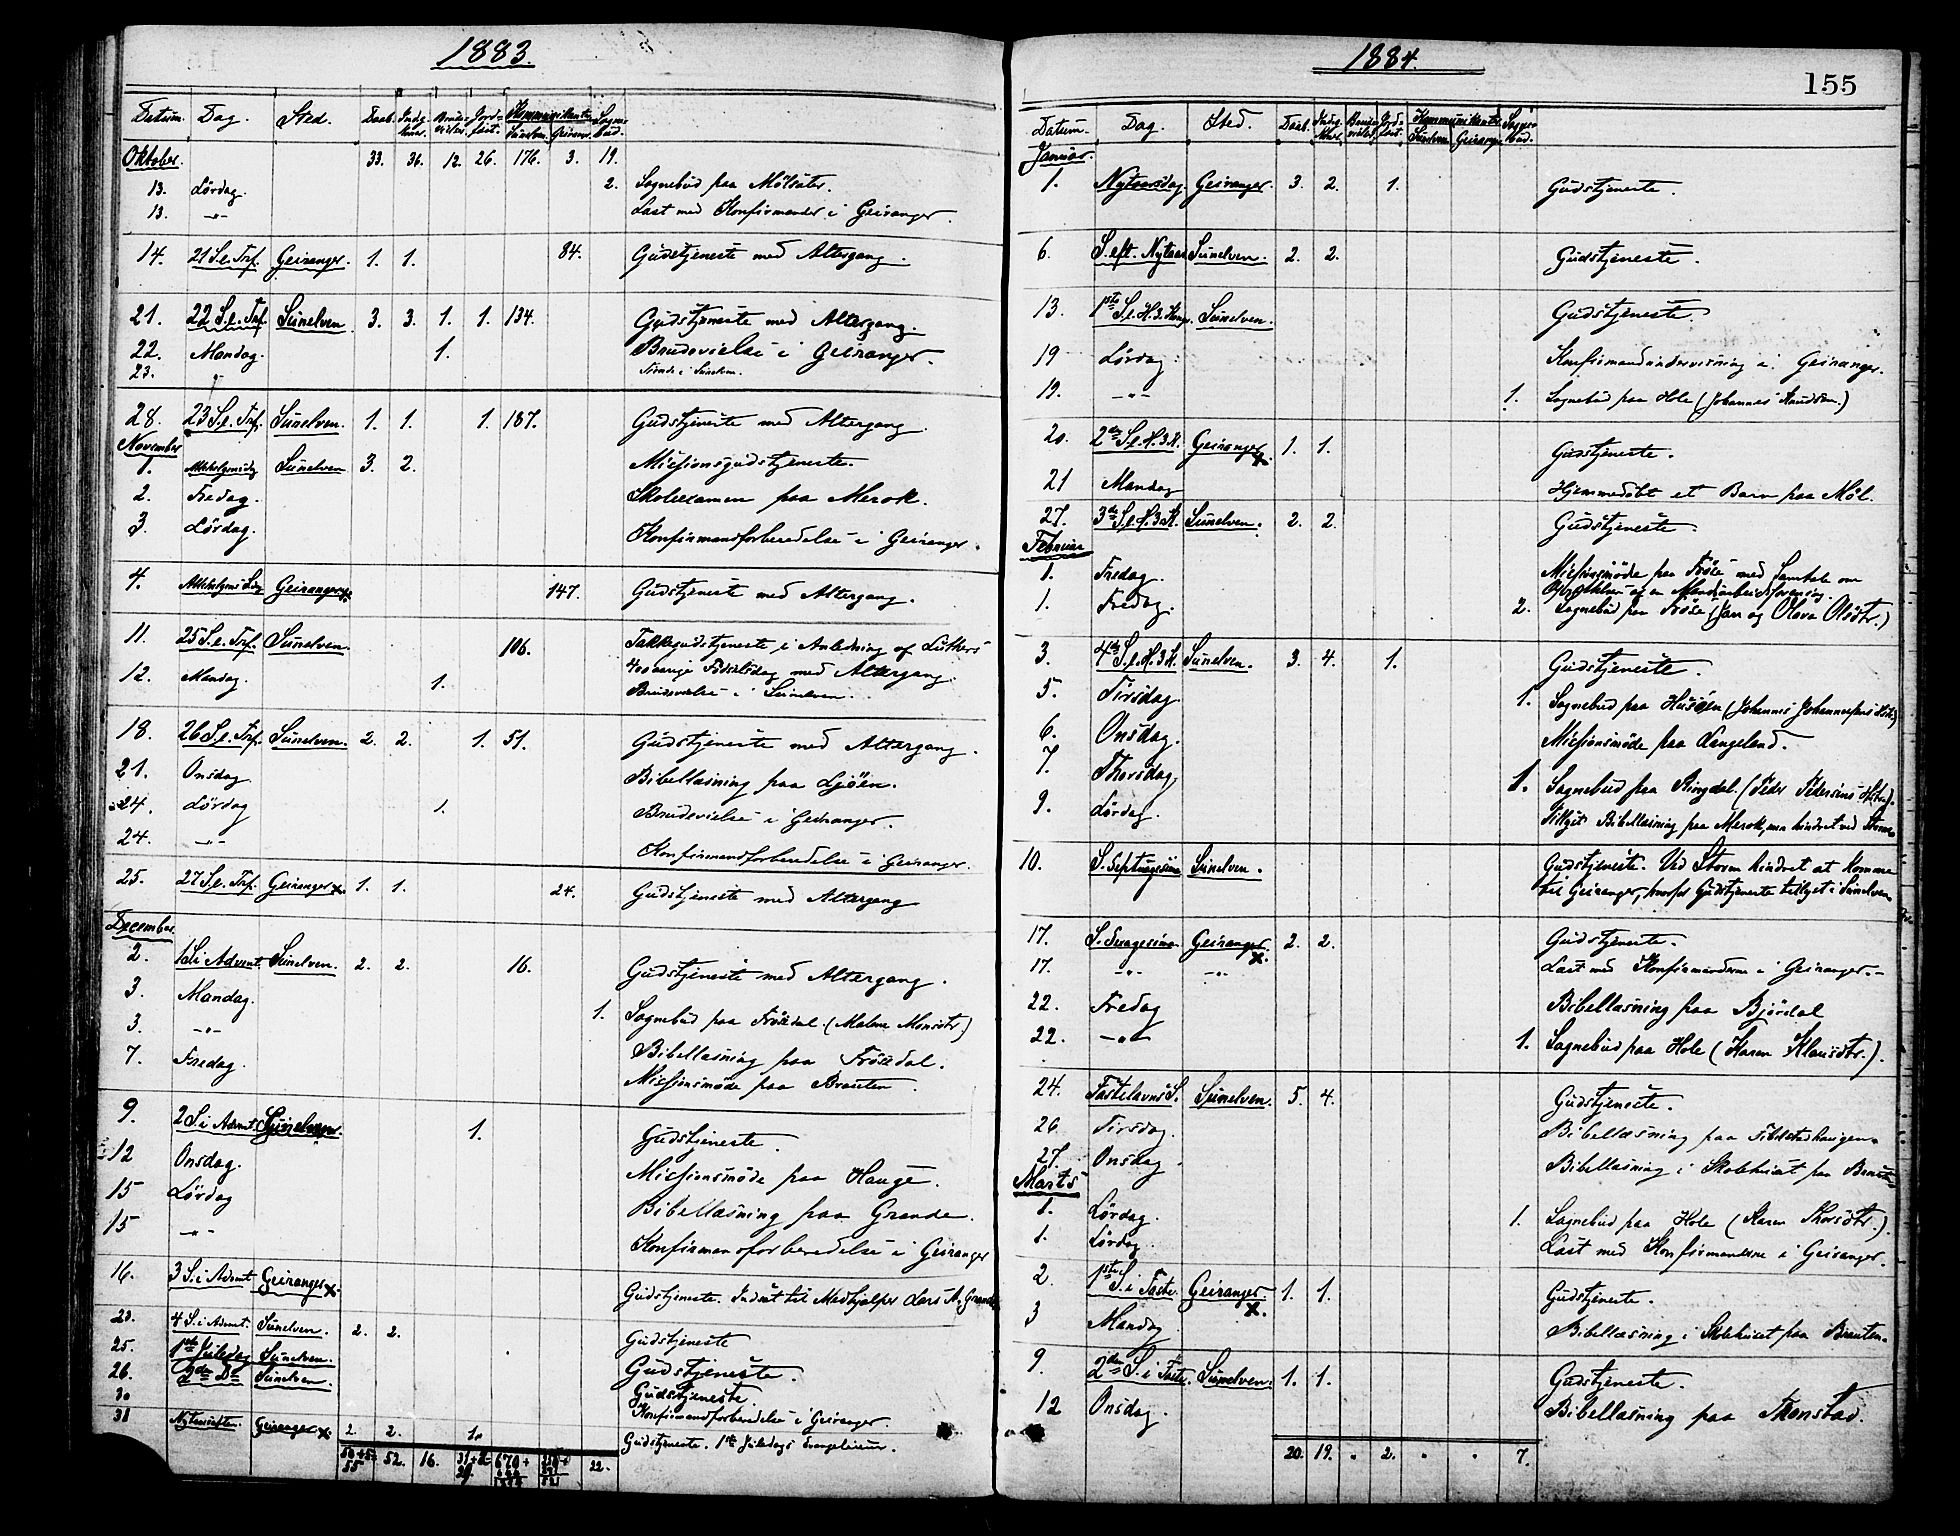 1883.
Datum. Dag. Sted. Daab. Indg. Kner. Brude- vielse. Jord- fæst. Kommunikanter Sunelven. Geiranger. Sogne- bud.
Oktober. 33. 36. 12. 26. 176. 3. 19.
13. Lördag. 2. Sognebud paa Mölsæter.
13. -"- Læst med Konfirmander i Geiranger.
14. 21 S. e. Tref. Geiranger. 1. 1. 84. Gudstjeneste med Altergang.
21. 22 S. e. Tref. Sunelven. 3. 3. 1. 1. 134. Gudstjeneste med Altergang.
22. Mandag. 1. Brudevielse i Geiranger.
23. " i Sunelven.
28. 23 S. e. Tref. Sunelven. 1. 1. 1. 187. Gudstjeneste med Altergang.
November
1. Allehelgensdag Sunelven 3. 2. Missionsgudstjeneste.
2. Fredag. Skoleexamen paa Merok.
3. Lördag. Konfirmandforberedelse i Geiranger.
4. Allehelgens Sdg. Geiranger x. 147. Gudstjeneste med Altergang.
11. 25 S. e. Tref. Sunelven. 106. Takkegudstjeneste i Anledning af Luthers
400 aarige Födselsdag med Altergang.
12. Mandag. 1. Brudevielse i Sunelven.
18. 26 S. e. Tref. Sunelven. 2. 2. 1. 51. Gudstjeneste med Altergang.
21. Onsdag Bibellæsning paa Ljöen.
24. Lördag 1. Brudevielse i Geiranger.
24. -"- Konfirmandforberedelse i Geiranger.
25. 27 S. e. Tref. Geiranger x. 1. 1. 24. Gudstjeneste med Altergang
December.
2. 1 S. i Advent. Sunelven. 2. 2. 16. Gudstjeneste med Altergang.
3. Mandag. 1. Sognebud paa Fröisdal. (Malene Monsdtr)
3. -"- Bibellæsning paa Fröisdal.
7. Fredag Missionsmöde paa Brauten.
9. 2 S. i Advent. Sunelven. 1. Gudstjeneste.
12 Onsdag. Missionsmöde paa Hauge.
15 Lördag Bibellæsning paa Grande.
15 -"- Konfirmandforberedelse i Geiranger
16. 3 S. i Advent Geiranger x. Gudstjeneste. Indsat til Medhjælper Lars A. Grande
23. 4 S. i Advent. Sunelven. 2. 2. Gudstjeneste
25. 1ste Juledag Sunelven. Gudstjeneste.
26. 2den Do Sunelven. Gudstjeneste.
30 Konfirmandforberedelse i Geiranger.
31 Nytaarsaften. Geiranger x. 2. 2. 1. Gudstjeneste. 1ste Juledags Evangelium.
55 52. 16. 22.
1884.
155
Datum. Dag. Sted. Daab. Indg. Kner. Brude- vielse. Jord- fæst. Kommunikanter Sunelven Geiranger Sogne- bud.
Januar.
1. Nytaarsdag Geiranger. 3. 2. 1. Gudstjeneste.
6. S. eft. Nytaar Sunelven. 2. 2. Gudstjeneste.
13. 1ste S. e. H. 3. Kong. Sunelven. Gudstjeneste.
19 Lördag. Konfirmandundervisning i Geiranger.
19. -"- 1. Sognebud paa Hole (Johannes Knudsen.)
20. 2den S. e. H. 3. K. Geiranger x. 1. 1. Gudstjeneste.
21 Mandag Hjemmedöbt et Barn paa Möl.
27. 3die S. e. H. 3. K. Sunelven. 2. 2. Gudstjeneste.
Februar
1. Fredag. Missionsmöde paa Fröisе med Samtale om
Oprettelsen af en Mandsarbeidsforening.
1. Fredag. 2. Sognebud paa Fröise (Jon og Olava Olsdtr.)
3. 4de S. e. H. 3. K. Sunelven. 3. 4. 1. Gudstjeneste.
5. Tirsdag 1. Sognebud paa Husöen (Johannes Johannessens Hstr.)
6. Onsdag. Missionsmöde paa Langeland.
7. Thorsdag. 1. Sognebud paa Ringdal. (Peder Pedersens Hstr.).
9. Lördag. Tillyst Bibellæsning paa Merok, men hindret ved Storm
10. S. Septuagesima Sunelven. Gudstjeneste. Ved Storm hindret at komme
til Geiranger, hvorfor Gudstjeneste tillyst i Sunelven
17. S. Sexagesima. Geiranger. x. 2. 2. Gudstjeneste.
17. -"- -"- Læst med Konfirmanderne i Geiranger.
22. Fredag Bibellæsning paa Björdal
22. -"- 1. Sognebud paa Hole (Karen Klausdtr.).
24. Fastelavns S. Sunelven. 5. 4. Gudstjeneste.
26. Tirsdag. Bibellæsning paa Fibelstadhaugen.
27. Onsdag Bibellæsning i Skolehuset paa Brauten
Marts
1. Lördag. 1. Sognebud paa Hole (Karen Thorsdtr.)
1. Lördag. Læst med Konfirmanderne i Geiranger.
2. 1ste S. i Faste. Geiranger x. 1. 1. Gudstjeneste.
3 Mandag Bibellæsning i Skolehuset paa Brauten.
9. 2den S. i Faste. Sunelven. 1. 1. Gudstjeneste.
12 Onsdag. Bibellæsning paa Thonstad.
20. 19. " 2. " " 7.